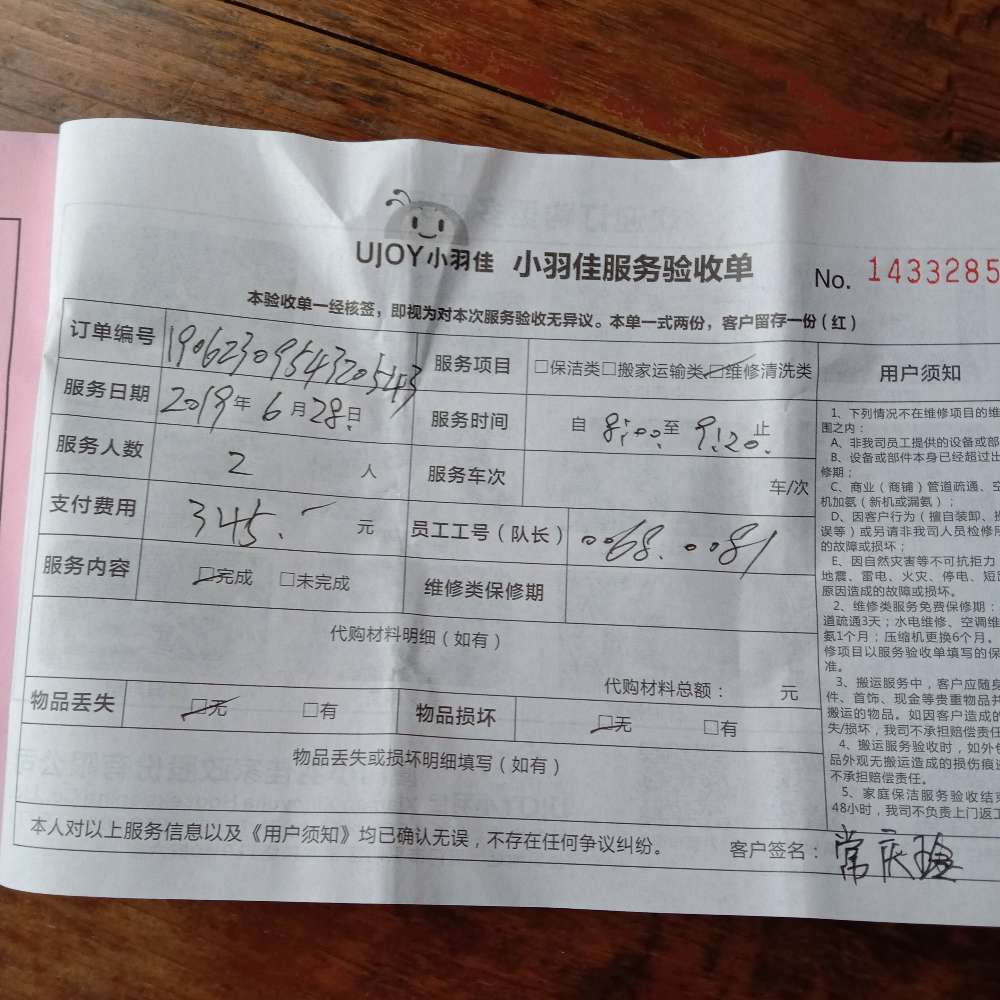 UJOY小羽佳 小羽佳服务验收单 No. 1433285
本验收单一经核签，即视为对本次服务验收无异议。本单一式两份，客户留存一份（红）
订单编号 19062309543205443 服务项目 □保洁类□搬家运输类☑维修清洗类
服务日期 2019年6月28日 服务时间 自 8:00 至 9:20 止
服务人数 2 人 服务车次 车/次
支付费用 345.- 元 员工工号（队长） 0068.0081
服务内容 ☑完成 □未完成 维修类保修期
代购材料明细（如有）
代购材料总额： 元
物品丢失 ☑无 □有 物品损坏 ☑无 □有
物品丢失或损坏明细填写（如有）
本人对以上服务信息以及《用户须知》均已确认无误，不存在任何争议纠纷。 客户签名：常庆
用户须知
1、下列情况不在维修项目的维
围之内：
A、非我司员工提供的设备或部
B、设备或部件本身已经超过出
修期；
C、商业（商铺）管道疏通、空
机加氨（新机或漏氨）；
D、因客户行为（擅自装卸、
误等）或另请非我司人员检修
的故障或损坏；
E、因自然灾害等不可抗拒力
地震、雷电、火灾、停电、短
原因造成的故障或损坏。
2、维修类服务免费保修期：
道疏通3天；水电维修、空调维
氨1个月；压缩机更换6个月。
修项目以服务验收单填写的保
准。
3、搬运服务中，客户应随身
件、首饰、现金等贵重物品并
搬运的物品。如因客户造成的
失/损坏，我司不承担赔偿责任
4、搬运服务验收时，如外包
品外观无搬运造成的损伤痕迹
不承担赔偿责任。
5、家庭保洁服务验收结束
48小时，我司不负责上门返工